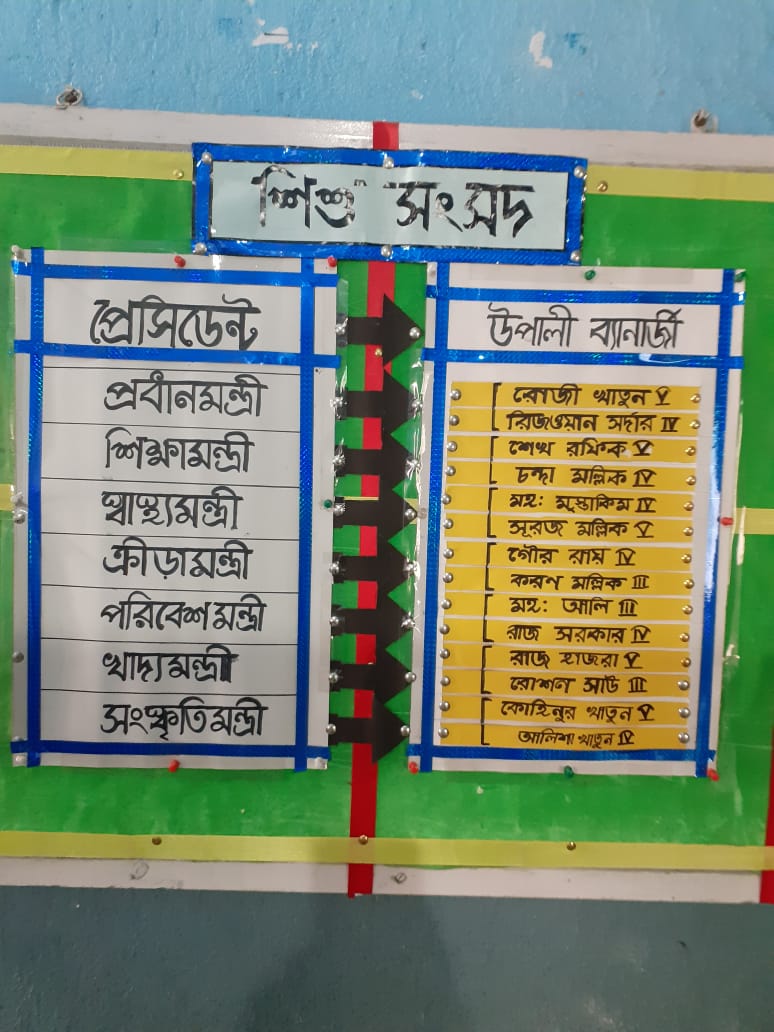 শিশু সংসদ
প্রেসিডেন্ট
উপালী ব্যানার্জী
প্রধানমন্ত্রী
রোজী খাতুন V
রিজওয়ান সর্দার IV
শিক্ষামন্ত্রী
শেখ রফিক V
চন্দা মল্লিক IV
স্বাস্থ্যমন্ত্রী
মহঃ মুস্তাকিম IV
সূরজ মল্লিক V
ক্রীড়ামন্ত্রী
গৌর রায় IV
করণ মল্লিক III
পরিবেশমন্ত্রী
মহঃ আলি III
রাজ সরকার IV
খাদ্যমন্ত্রী
রাজু হাজরা V
রোশন সাউ III
সংস্কৃতিমন্ত্রী
কোহিনুর খাতুন V
আলিশা খাতুন IV